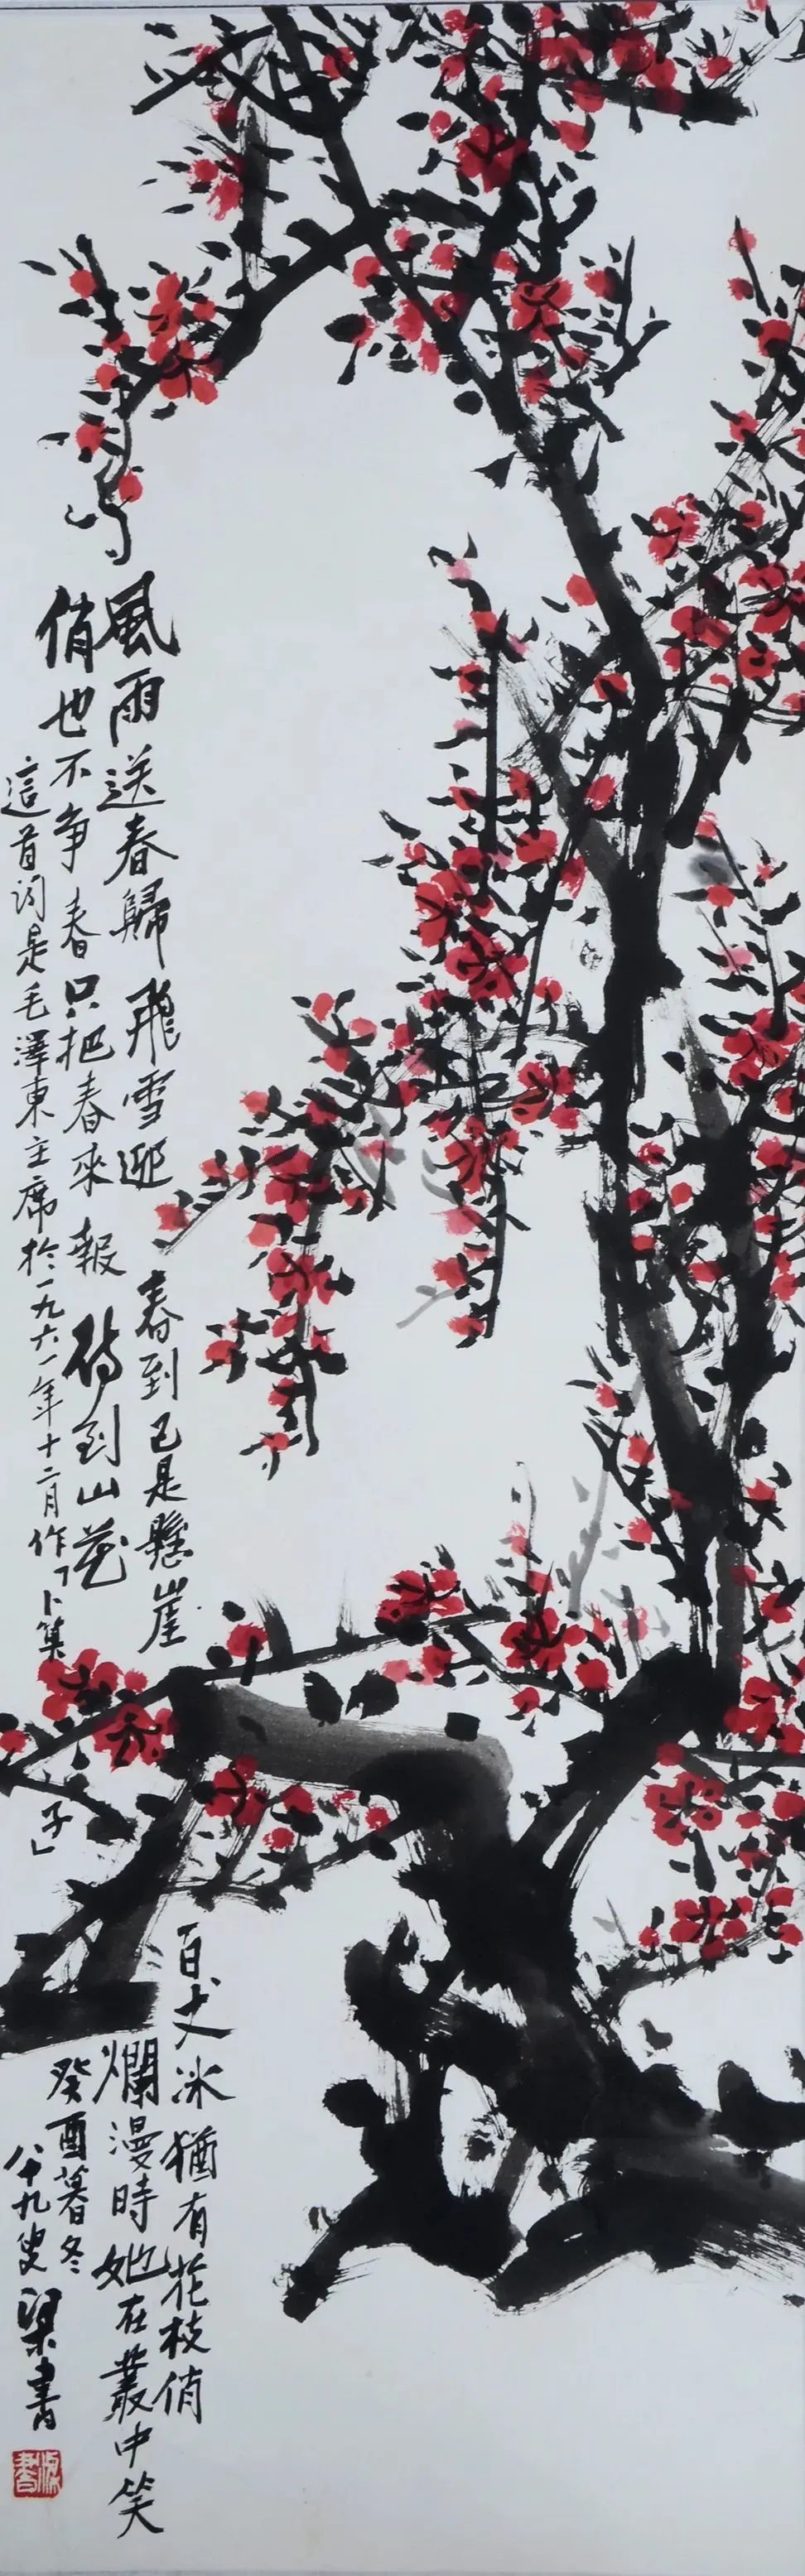 風雨送春歸飛雪迎春到已是懸崖百丈冰猶有花枝俏
俏也不争春只把春來報待到山花爛漫時她在叢中笑
這首词是毛澤東主席於一九六一年十二月作「卜算子」
癸酉暮冬
八十九叟梁書